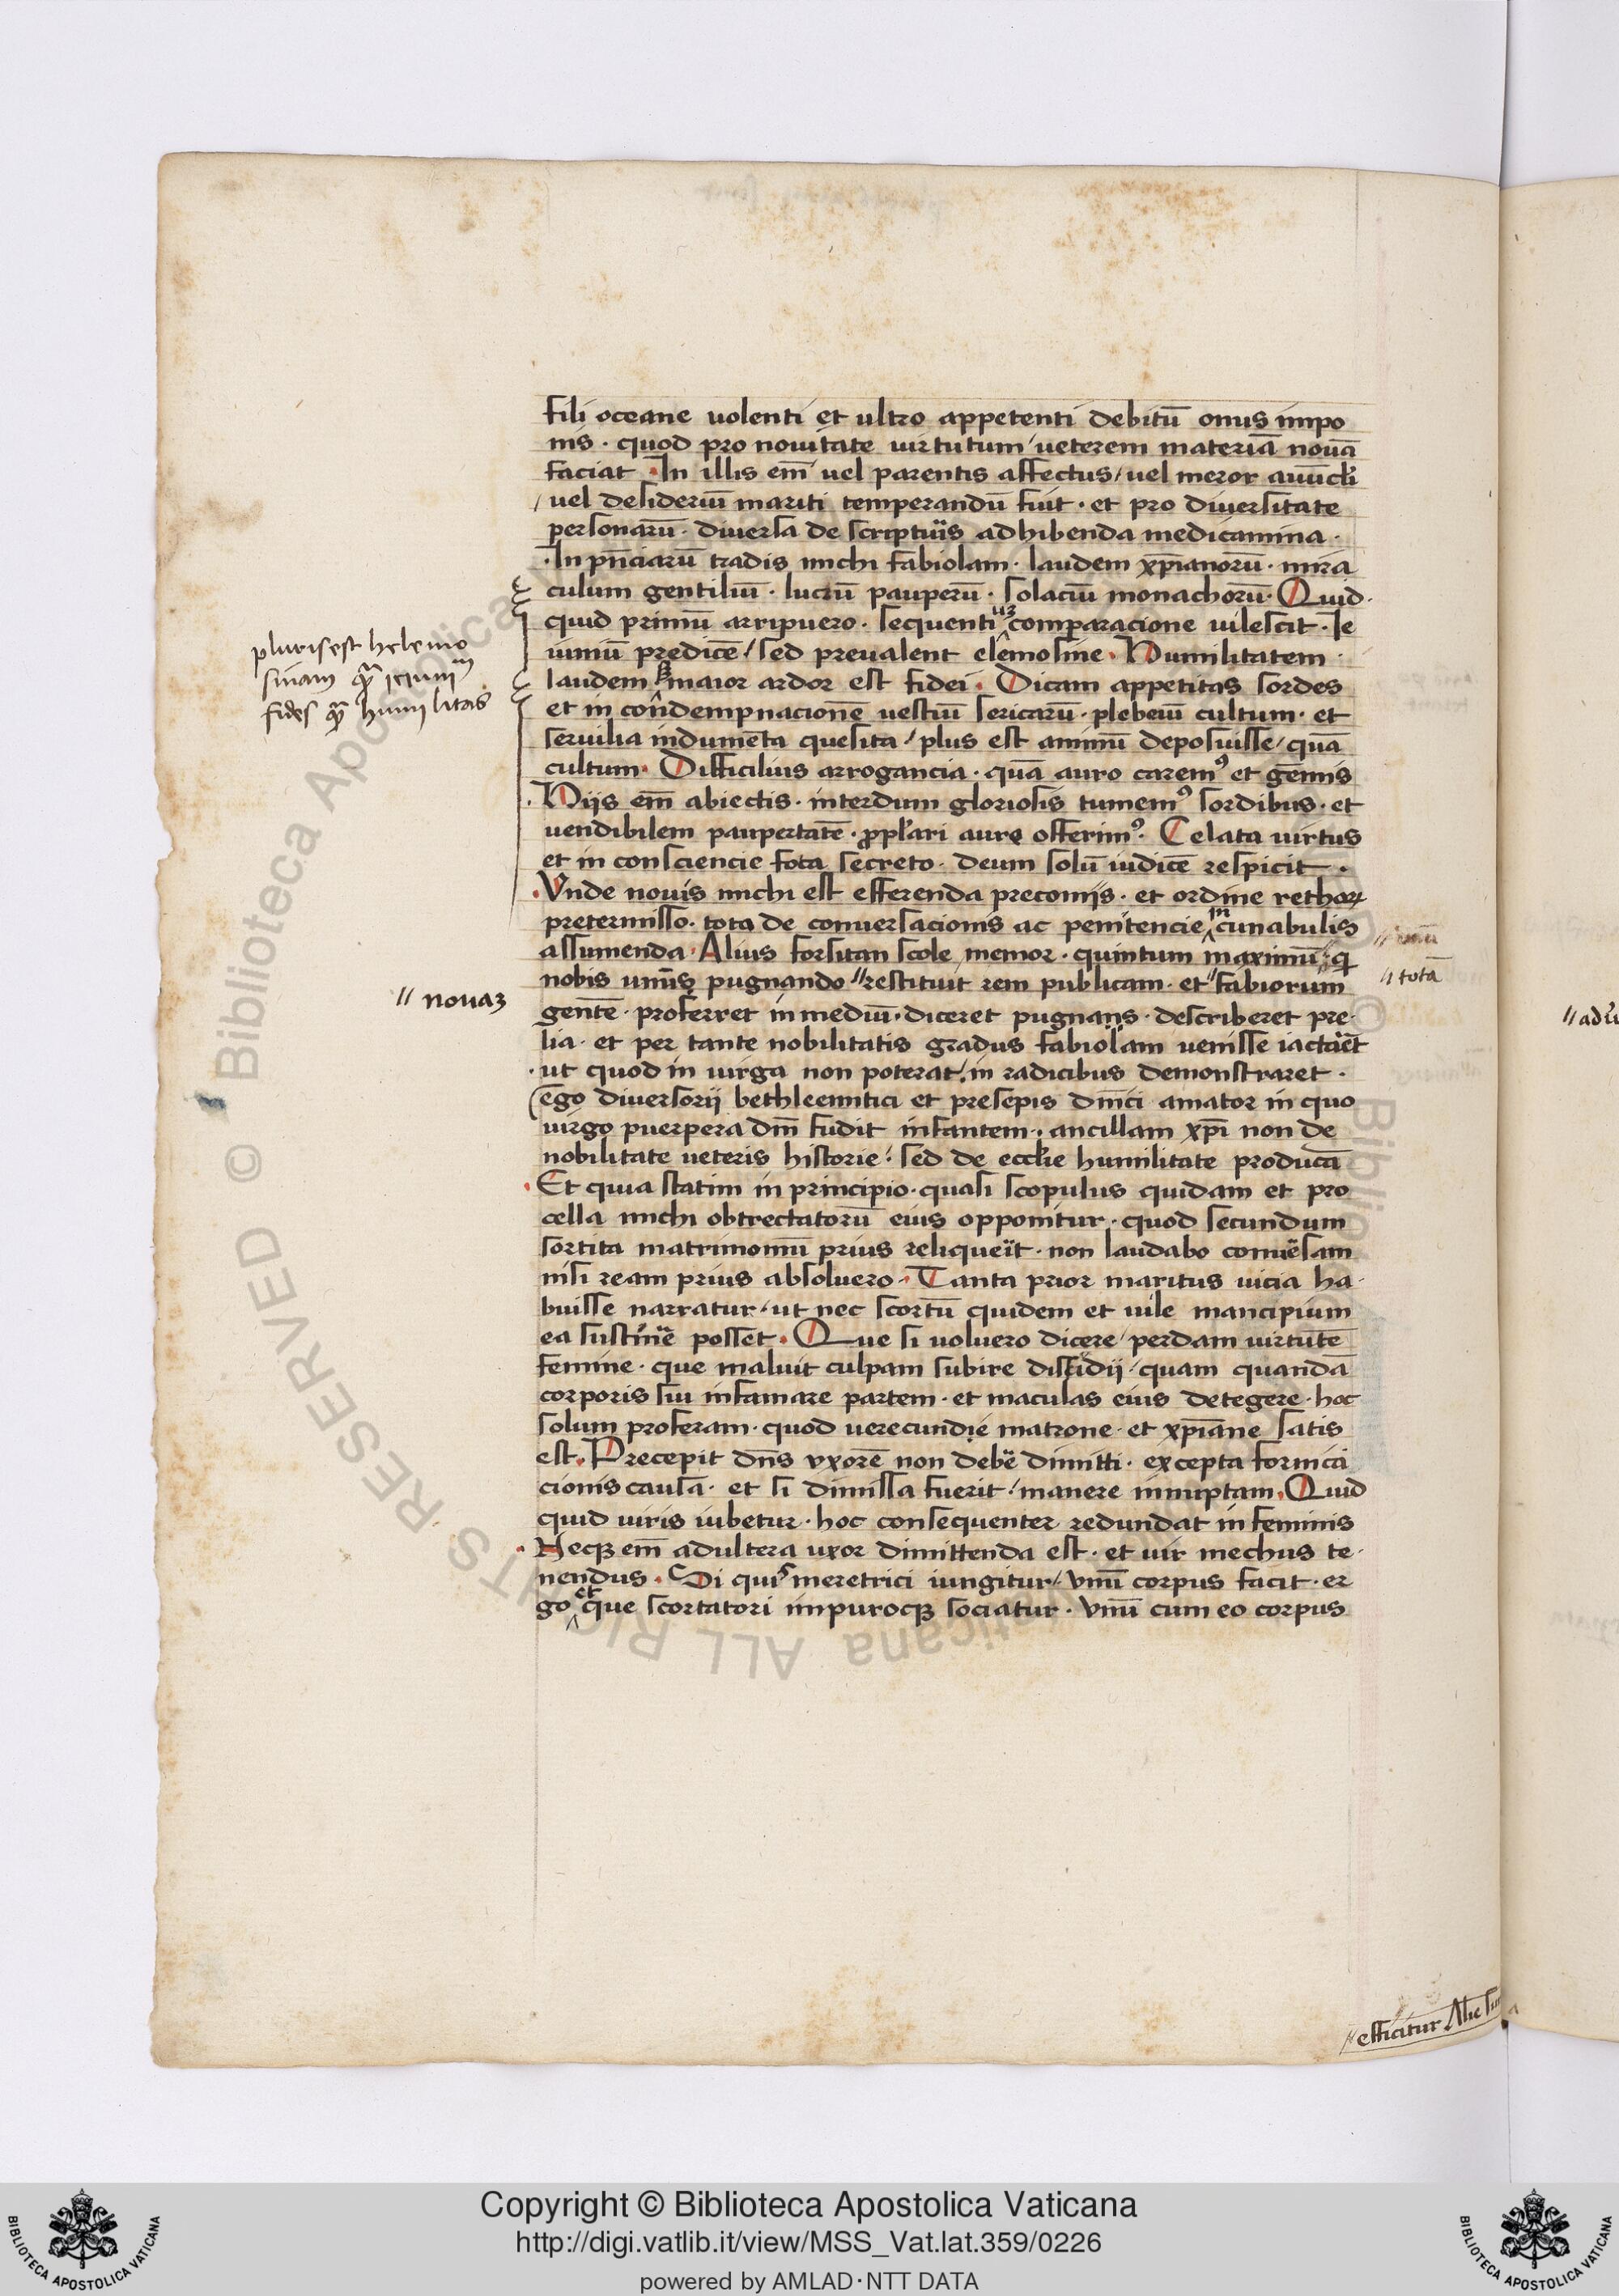 fili oceane uolenti et ultro appetenti debitū onus impo
nis · quod pro nouitate uirtutum / ueterem materiā nouā
faciat · In illis em̄ uel parentis affectus / uel meror auūcl̓i
/ uel desideriū mariti temperandū fuit · et pro diuersitate
personarū · diuersa de scriptur̄is adhibenda medicamina ·
· In pn̄ciarū tradis michi fabiolam · laudem xp̄ianorū · mira
culum gentiliū · luctū pauperū · solaciū monachorū · Quid ·
quid primū arripuero · sequentiuꝫ comparacione uilescit · Ie
iuniū predicē / sed preualent elemosine · Humilitatem ·
laudem sꝫ maior ardor est fidei · Dicam appetitas sordes
et in condempnacionē uestiū sericarū · plebeiū cultum · et
seruilia indumēta quesita / plus est animū deposuisse / quā
cultum · Difficilius arrogancia · quā auro caremꝰ et gēmis
· Hiis em̄ abiectis · interdum gloriosis tumemꝰ sordibus · et
uendibilem paupertatē · ꝓpl̓ari aure offerimꝰ · Celata uirtus
et in consciencie fota secreto · deum solū iudicē respicit ·
· Vnde nouis michi est efferenda preconiis · et ordine rethoꝝ
pretermisso · tota de conuersacionis ac penitencie in cunabulis
assumenda · Alius forsitan scole memor · quintum maximū // q̄
nobis unus pugnando // restituit rem publicam · et // fabiorum
gentē · proferret in mediū · diceret pugnans · describeret pre ·
lia · et per tante nobilitatis gradus fabiolam uenisse iactaret
· ut quod in uirga non poterat / in radicibus demonstraret ·
( ego diuersorii bethleemitici et presepis dn̄ici amator in quo
uirgo puerpera dm̄ fudit infantem · ancillam xp̄i non de
nobilitate ueteris historie / sed de eccl̓ie humilitate producā
· Et quia statim in principio · quasi scopulus quidam et pro
cella michi obtrectatorū eius opponitur · quod secundum
sortita matrimoniū prius reliquerit · non laudabo conuersam
nisi ream prius absoluero · Tanta prior maritus uicia ha ·
buisse narratur · ut nec scortū quidem et uile mancipium
ea sustinere posset · Que si uoluero dicere / perdam uirtutē
femine · que maluit culpam subire discidii / quam quandā
corporis sui infamare partem · et maculas eius detegere · hoc
solum proferam · quod uerecundie matrone · et xp̄iane satis
est · Precepit dn̄s uxorē non debere dimitti · excepta fornica
cionis causa · et si dimissa fuerit / manere innuptam · Quid
quid uiris iubetur · hoc consequenter redundat in feminis
· Neqꝫ em̄ adultera uxor dimittenda est · et uir mechus te ·
nendus · Si quis meretrici iungitur / vnū corpus facit · er
go et que scortatori impuroqꝫ sociatur · vnū cum eo corpus
pluris est helemo
sinam quā ieiunium
fides quā humilitas
// nouaꝫ
// totā
// efficitur Alie
Copyright © Biblioteca Apostolica Vaticana
http://digi.vatlib.it/view/MSS_Vat.lat.359/0226
powered by AMLAD·NTT DATA
BIBLIOTECA APOSTOLICA VATICANA
BIBLIOTECA APOSTOLICA VATICANA
© Biblioteca Apostolica Vaticana ALL RIGHTS RESERVED